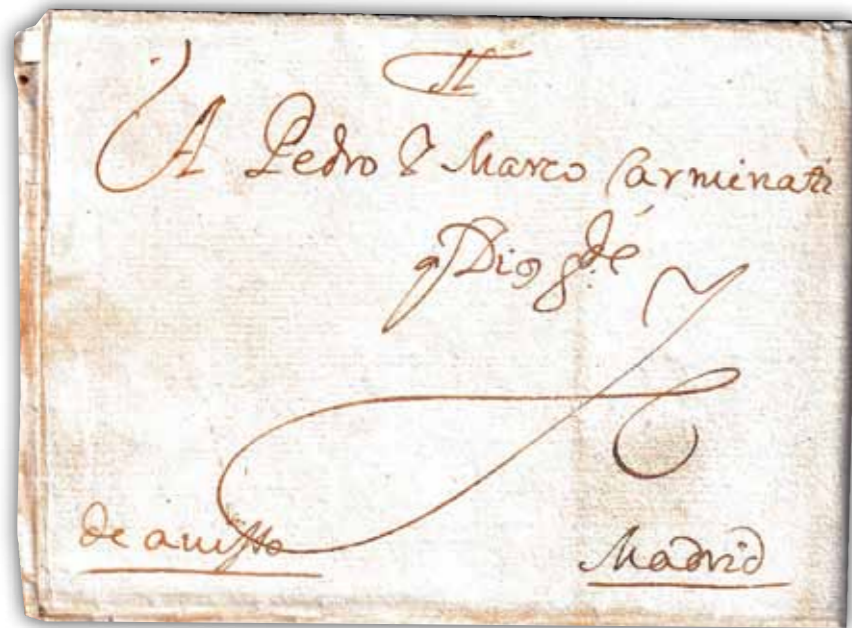 A Pedro Y Marco Carminati
q Dios g.de
de avisso
Madrid